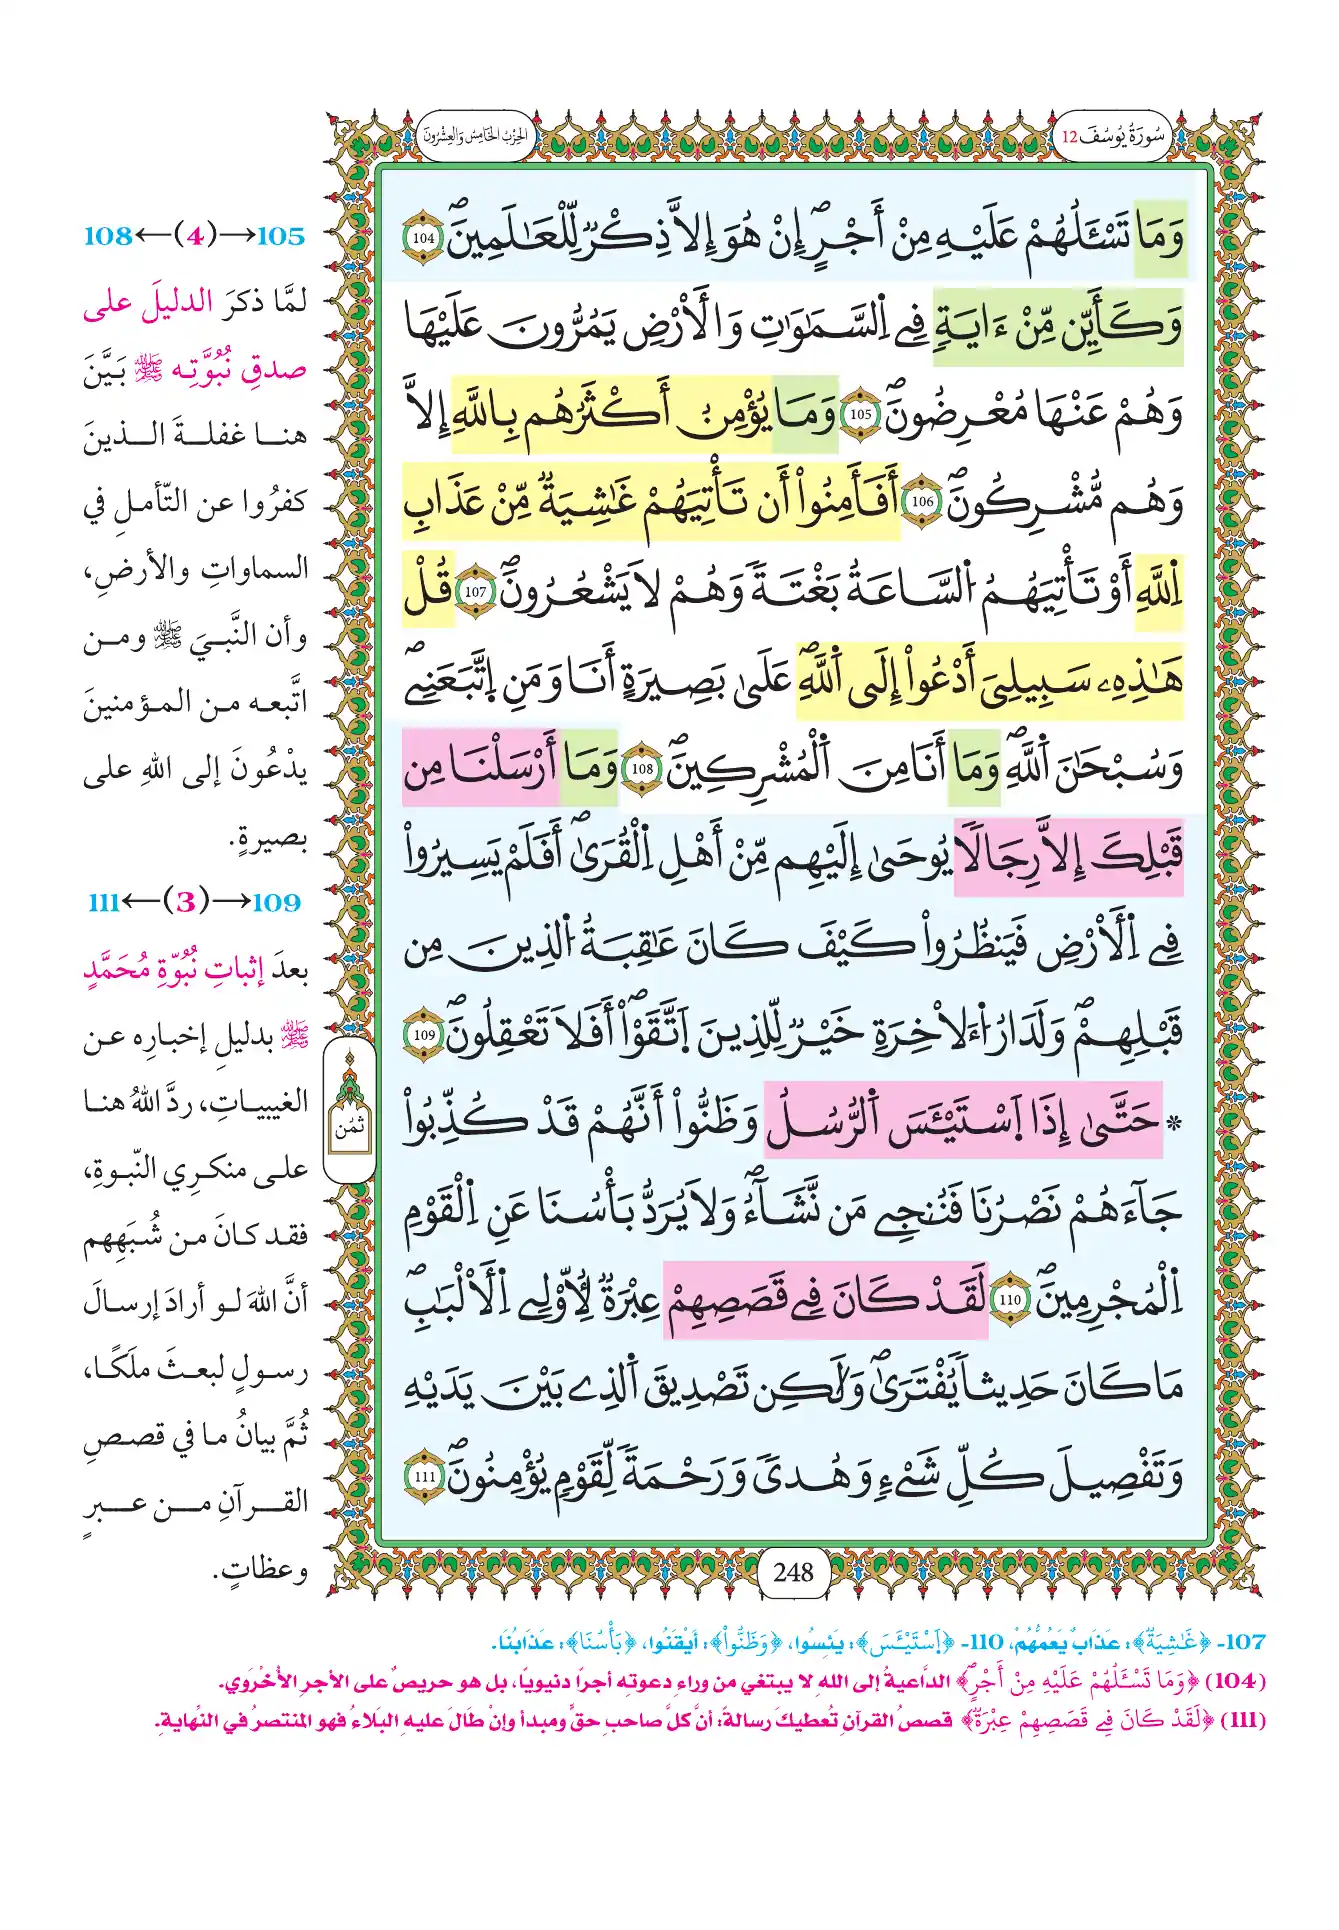 سُورَةُ يُوسُفَ 12
الحِزْبُ الخَامِسُ وَالعِشْرُونَ
وَمَا تَسْـَٔلُهُمْ عَلَيْهِ مِنْ أَجْرٍۖ إِنْ هُوَ إِلَّا ذِكْرٞ لِّلْعَٰلَمِينَۖ 104
وَكَأَيِّن مِّنْ ءَايَةٖ فِے اِ۬لسَّمَٰوَٰتِ وَالْأَرْضِ يَمُرُّونَ عَلَيْهَا
وَهُمْ عَنْهَا مُعْرِضُونَۖ 105 وَمَا يُؤْمِنُ أَكْثَرُهُم بِاللَّهِ إِلَّا
وَهُم مُّشْرِكُونَۖ 106 أَفَأَمِنُوٓاْ أَن تَأْتِيَهُمْ غَٰشِيَةٞ مِّنْ عَذَابِ
اِ۬للَّهِ أَوْ تَأْتِيَهُمُ اُ۬لسَّاعَةُ بَغْتَةٗ وَهُمْ لَا يَشْعُرُونَۖ 107 قُلْ
هَٰذِهِۦ سَبِيلِيَ أَدْعُوٓاْ إِلَى اَ۬للَّهِۖ عَلَىٰ بَصِيرَةٍ أَنَا وَمَنِ اِ۪تَّبَعَنِےۖ
وَسُبْحَٰنَ اَ۬للَّهِۖ وَمَا أَنَا مِنَ اَ۬لْمُشْرِكِينَۖ 108 وَمَا أَرْسَلْنَا مِن
قَبْلِكَ إِلَّا رِجَالٗا يُوحَىٰ إِلَيْهِم مِّنْ أَهْلِ اِ۬لْقُرَىٰۖ أَفَلَمْ يَسِيرُواْ
فِے اِ۬لْأَرْضِ فَيَنظُرُواْ كَيْفَ كَانَ عَٰقِبَةُ اُ۬لذِينَ مِن
قَبْلِهِمْۖ وَلَدَارُ اُ۬لَاخِرَةِ خَيْرٞ لِّلذِينَ اَ۪تَّقَوْاْۖ أَفَلَا تَعْقِلُونَۖ 109
* حَتَّىٰ إِذَا اَ۪سْتَيْـَٔسَ اَ۬لرُّسُلُ وَظَنُّواْ أَنَّهُمْ قَدْ كُذِّبُواْ
جَآءَهُمْ نَصْرُنَا فَنُنجِے مَن نَّشَآءُۖ وَلَا يُرَدُّ بَأْسُنَا عَنِ اِ۬لْقَوْمِ
اِ۬لْمُجْرِمِينَۖ 110 لَقَدْ كَانَ فِے قَصَصِهِمْ عِبْرَةٞ لِّأُوْلِے اِ۬لْأَلْبَٰبِۖ
مَا كَانَ حَدِيثاٗ يُفْتَرَىٰۖ وَلَٰكِن تَصْدِيقَ اَ۬لذِے بَيْنَ يَدَيْهِ
وَتَفْصِيلَ كُلِّ شَےْءٖ وَهُدىٗ وَرَحْمَةٗ لِّقَوْمٖ يُؤْمِنُونَۖ 111
ثُمُن
248
105→(4)←108
لمَّا ذكرَ الدليلَ على
صدقِ نُبُوَّتِه ﷺ بَيَّنَ
هنا غفلةَ الذينَ
كفرُوا عن التّأملِ في
السماواتِ والأرضِ،
وأن النَّبيَ ﷺ ومن
اتَّبعه من المؤمنينَ
يدْعُونَ إلى اللهِ على
بصيرةٍ.
109→(3)←111
بعدَ إثباتِ نُبُوّةِ مُحَمَّدٍ
ﷺ بدليلِ إخبارِه عن
الغيبياتِ، ردَّ اللهُ هنا
على منكرِي النّبوةِ،
فقد كانَ من شُبَهِهم
أنَّ اللهَ لو أرادَ إرسالَ
رسولٍ لبعثَ ملَكًا،
ثُمَّ بيانُ ما في قصصِ
القرآنِ من عبرٍ
وعظاتٍ.
107- ﴿غَٰشِيَةٞ﴾: عَذَابٌ يَعُمُّهُمْ، 110- ﴿اَ۪سْتَيْـَٔسَ﴾: يَئِسُوا، ﴿وَظَنُّواْ﴾: أَيْقَنُوا، ﴿بَأْسُنَا﴾: عَذَابُنَا.
(104) ﴿وَمَا تَسْـَٔلُهُمْ عَلَيْهِ مِنْ أَجْرٍۖ﴾ الدَّاعيةُ إلى اللهِ لا يبتغي من وراءِ دعوتِه أجرًا دنيويًا، بل هو حريصٌ على الأجرِ الأُخْرَوي.
(111) ﴿لَقَدْ كَانَ فِے قَصَصِهِمْ عِبْرَةٞ﴾ قصصُ القرآنِ تُعطيكَ رسالةً: أنَّ كلَّ صاحبِ حقٍّ ومبدأ وإن طَالَ عليهِ البَلاءُ فهو المنتصرُ في النّهايةِ.